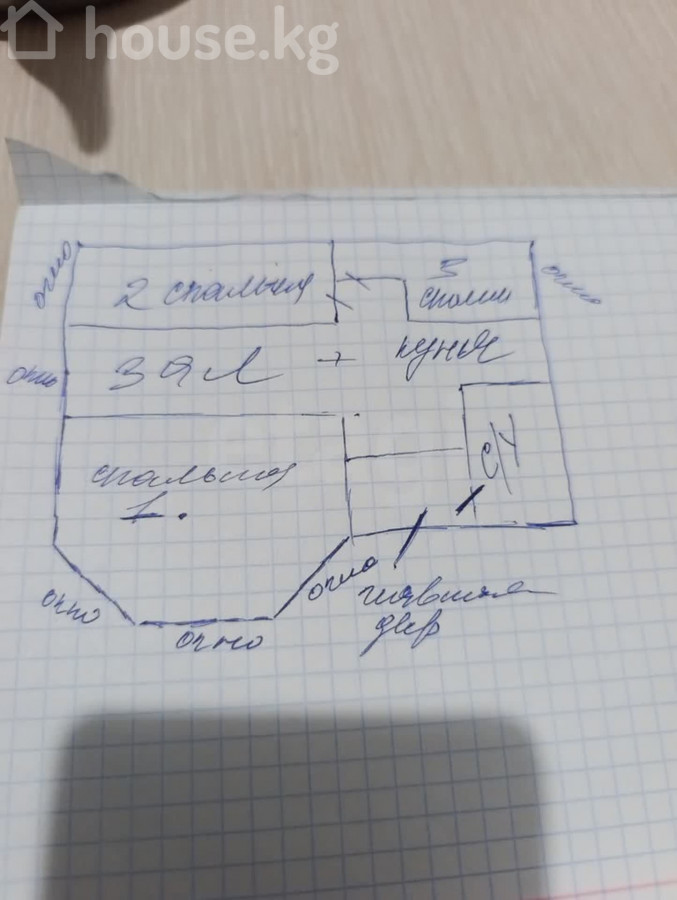 house.kg
окно
2 спальня
3
спальн
окно
окно
зал + кухня
спальня
1.
с/у
окно
окно
окно
главная
двер